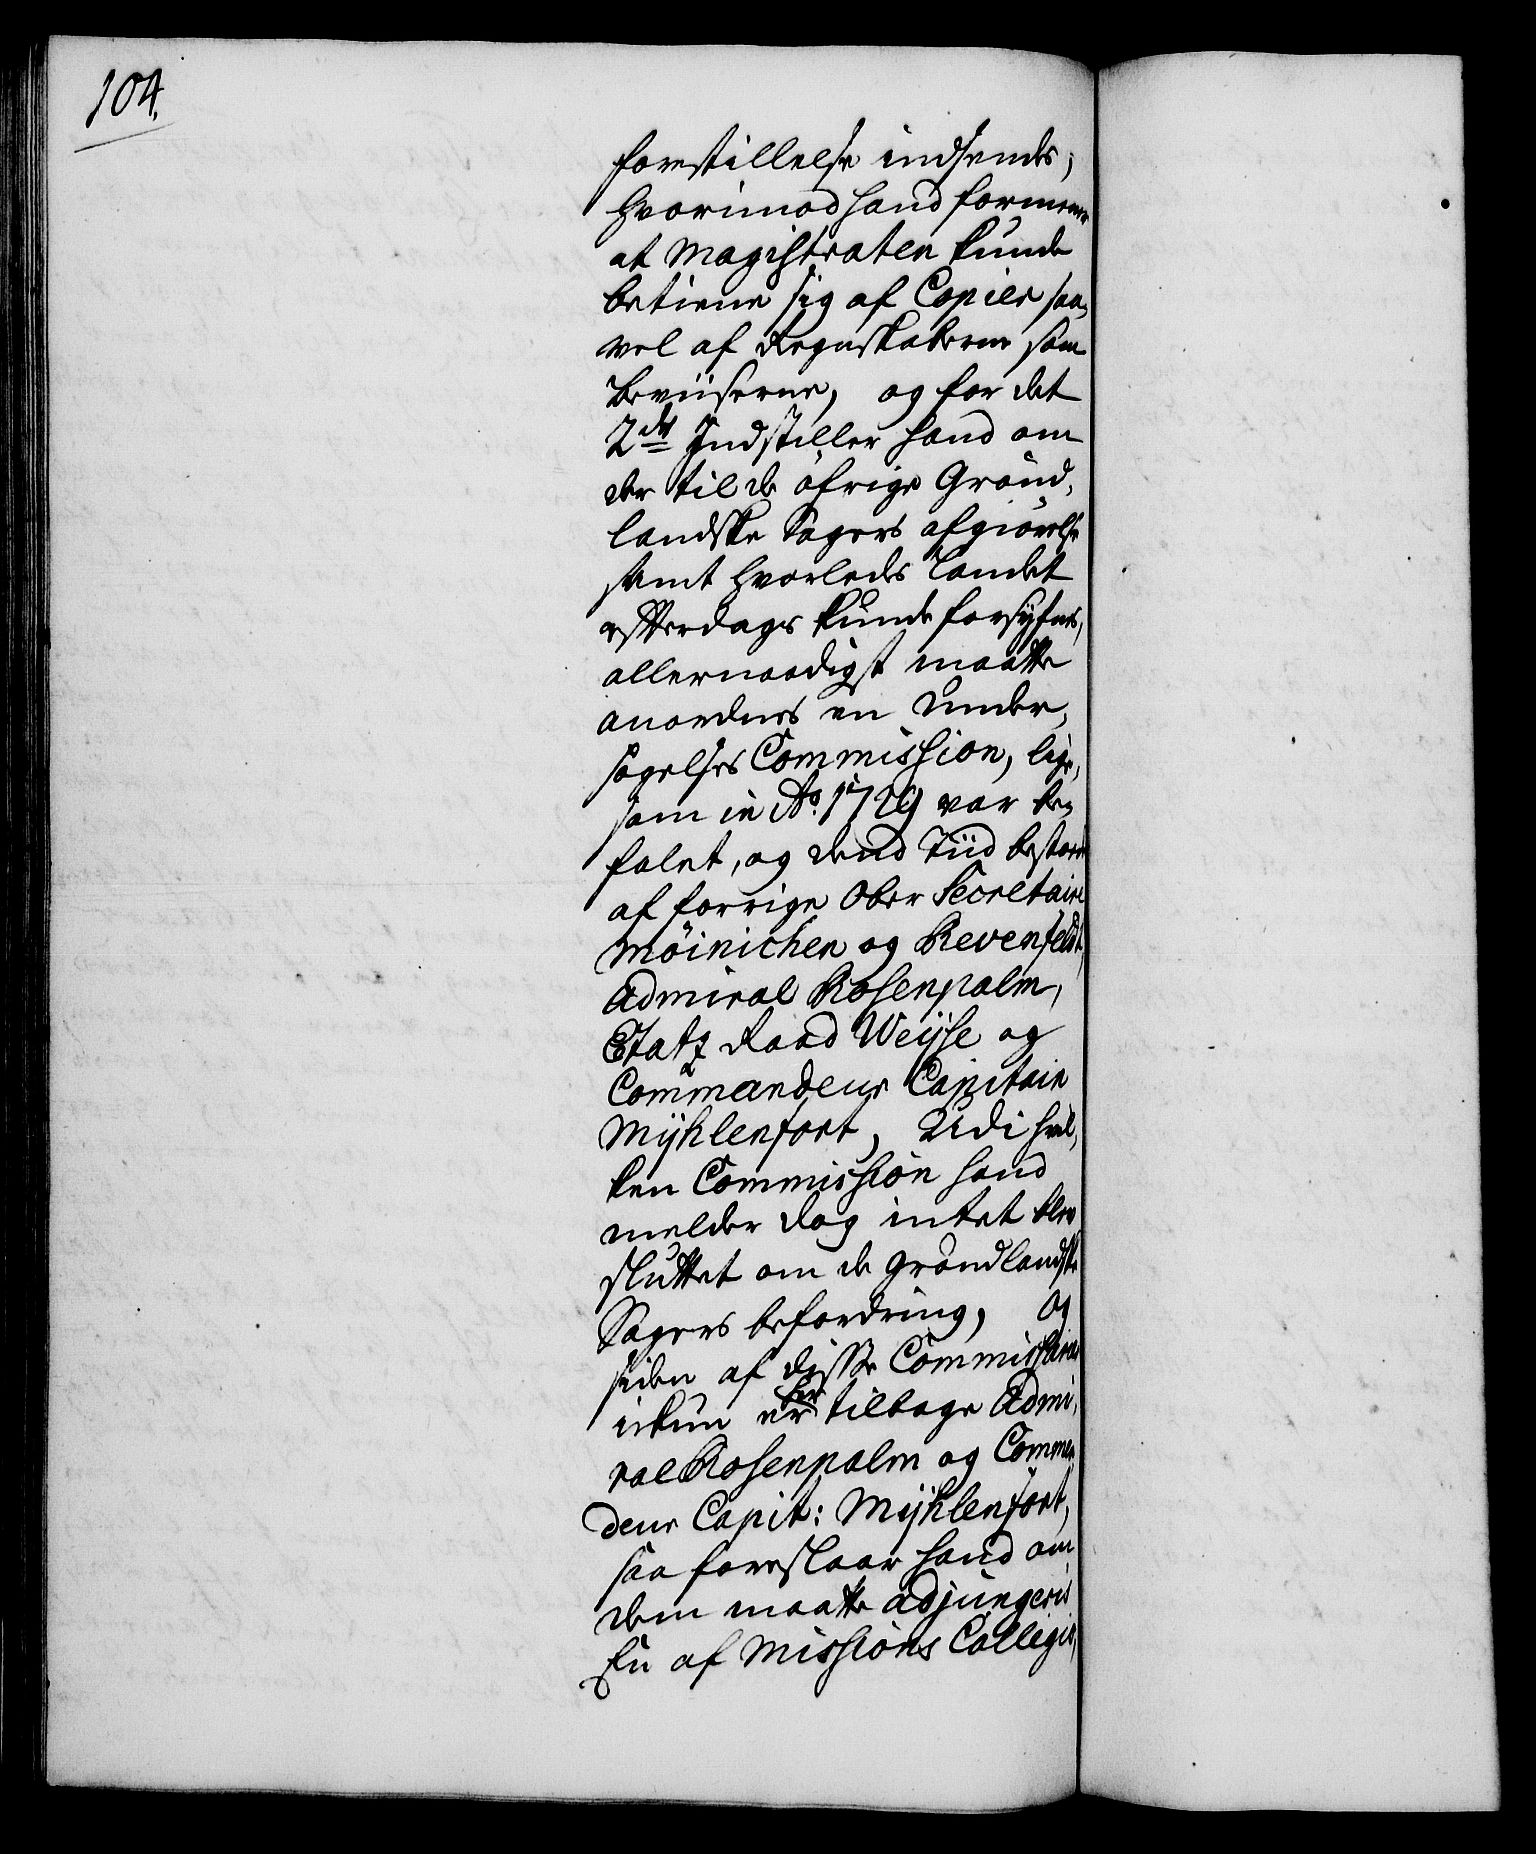 104.
forestillelse indsendes;
hvorimod hand formener
at Magistraten kunde
betiene sig af Copier saa,
vel af Regnskaberne som
Beviiserne, og for det
2det Indstiller hand om
der til de øfrige Grønd,
landske Sagers afgiørelse
samt hvorledes Landet
efterdags kunde forsyfnes,
allernaadigst maatte
anordnes en Under,
søgelses Commission, lige,
som in Ao. 1729 var be,
falet, og dend Tiid bestoed
af forrige Ober Secretairer
Möinichen og Revenfeldt,
Admiral Rosenpalm,
Etatz Raad Weyse og
Commandeur Capitain
Myhlenfort, Udi hvil,
ken Commission hand
melder dog intet blev
sluttet om de Grøndlandske
Sagers befordring, og
siden af disse Commissairer
ickun er her tilbage Admi,
ral Rosenpalm og Comman
deur Capit: Myhlenfort,
saa foreslaar hand om
dem maatte adjungeris
En af Missions Collegio,